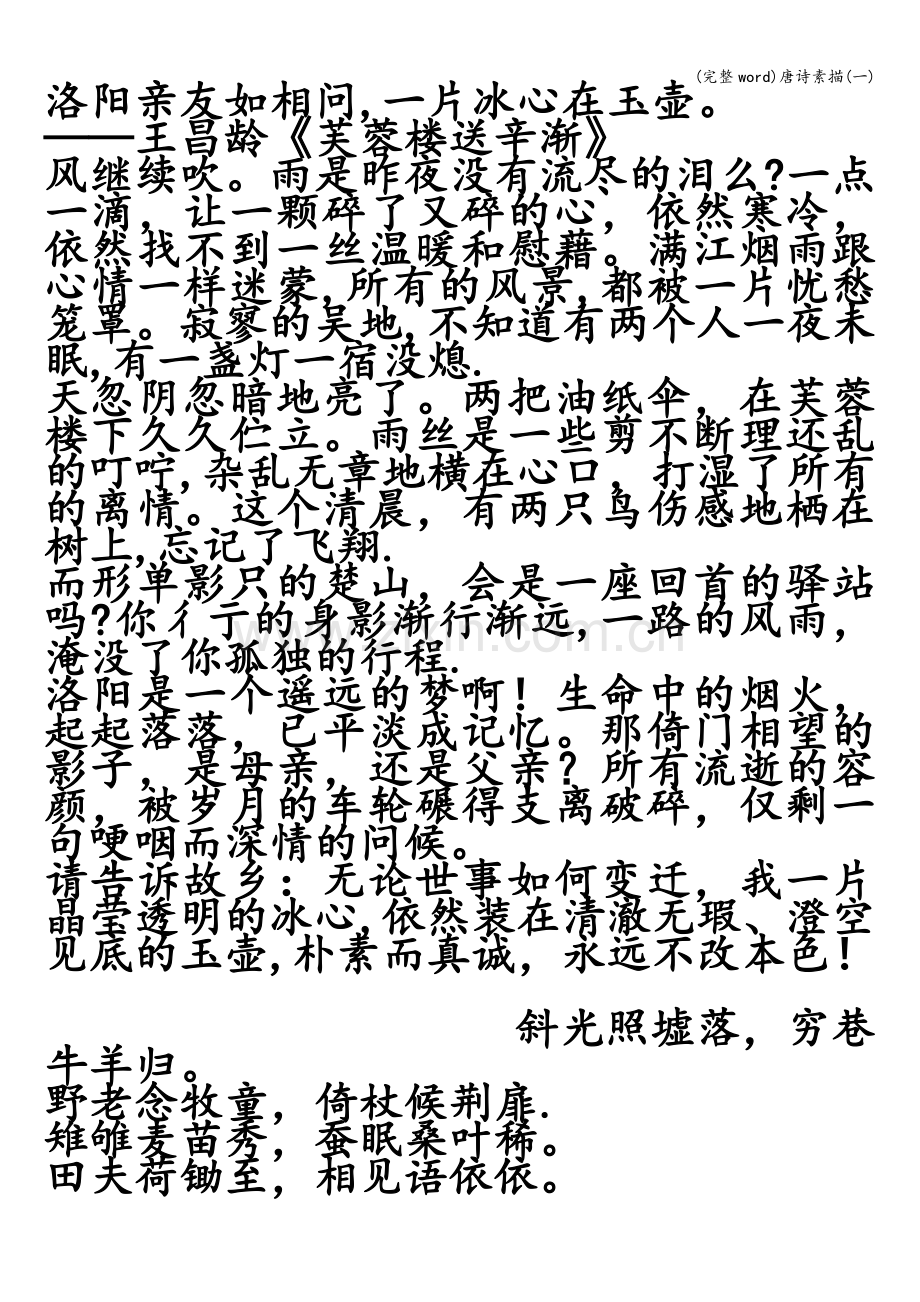 (完整word)唐诗素描(一)
洛阳亲友如相问,一片冰心在玉壶。
——王昌龄《芙蓉楼送辛渐》
风继续吹。雨是昨夜没有流尽的泪么?一点
一滴，让一颗碎了又碎的心，依然寒冷，
依然找不到一丝温暖和慰藉。满江烟雨跟
心情一样迷蒙,所有的风景,都被一片忧愁
笼罩。寂寥的吴地,不知道有两个人一夜未
眠,有一盏灯一宿没熄.
天忽阴忽暗地亮了。两把油纸伞，在芙蓉
楼下久久伫立。雨丝是一些剪不断理还乱
的叮咛,杂乱无章地横在心口，打湿了所有
的离情。这个清晨，有两只鸟伤感地栖在
树上,忘记了飞翔.
而形单影只的楚山，会是一座回首的驿站
吗?你彳亍的身影渐行渐远,一路的风雨，
淹没了你孤独的行程.
洛阳是一个遥远的梦啊！生命中的烟火，
起起落落，已平淡成记忆。那倚门相望的
影子，是母亲，还是父亲？所有流逝的容
颜，被岁月的车轮碾得支离破碎，仅剩一
句哽咽而深情的问候。
请告诉故乡：无论世事如何变迁，我一片
晶莹透明的冰心,依然装在清澈无瑕、澄空
见底的玉壶,朴素而真诚，永远不改本色！
斜光照墟落，穷巷
牛羊归。
野老念牧童，倚杖候荆扉.
雉雊麦苗秀，蚕眠桑叶稀。
田夫荷锄至，相见语依依。
www.zixin.com.cn